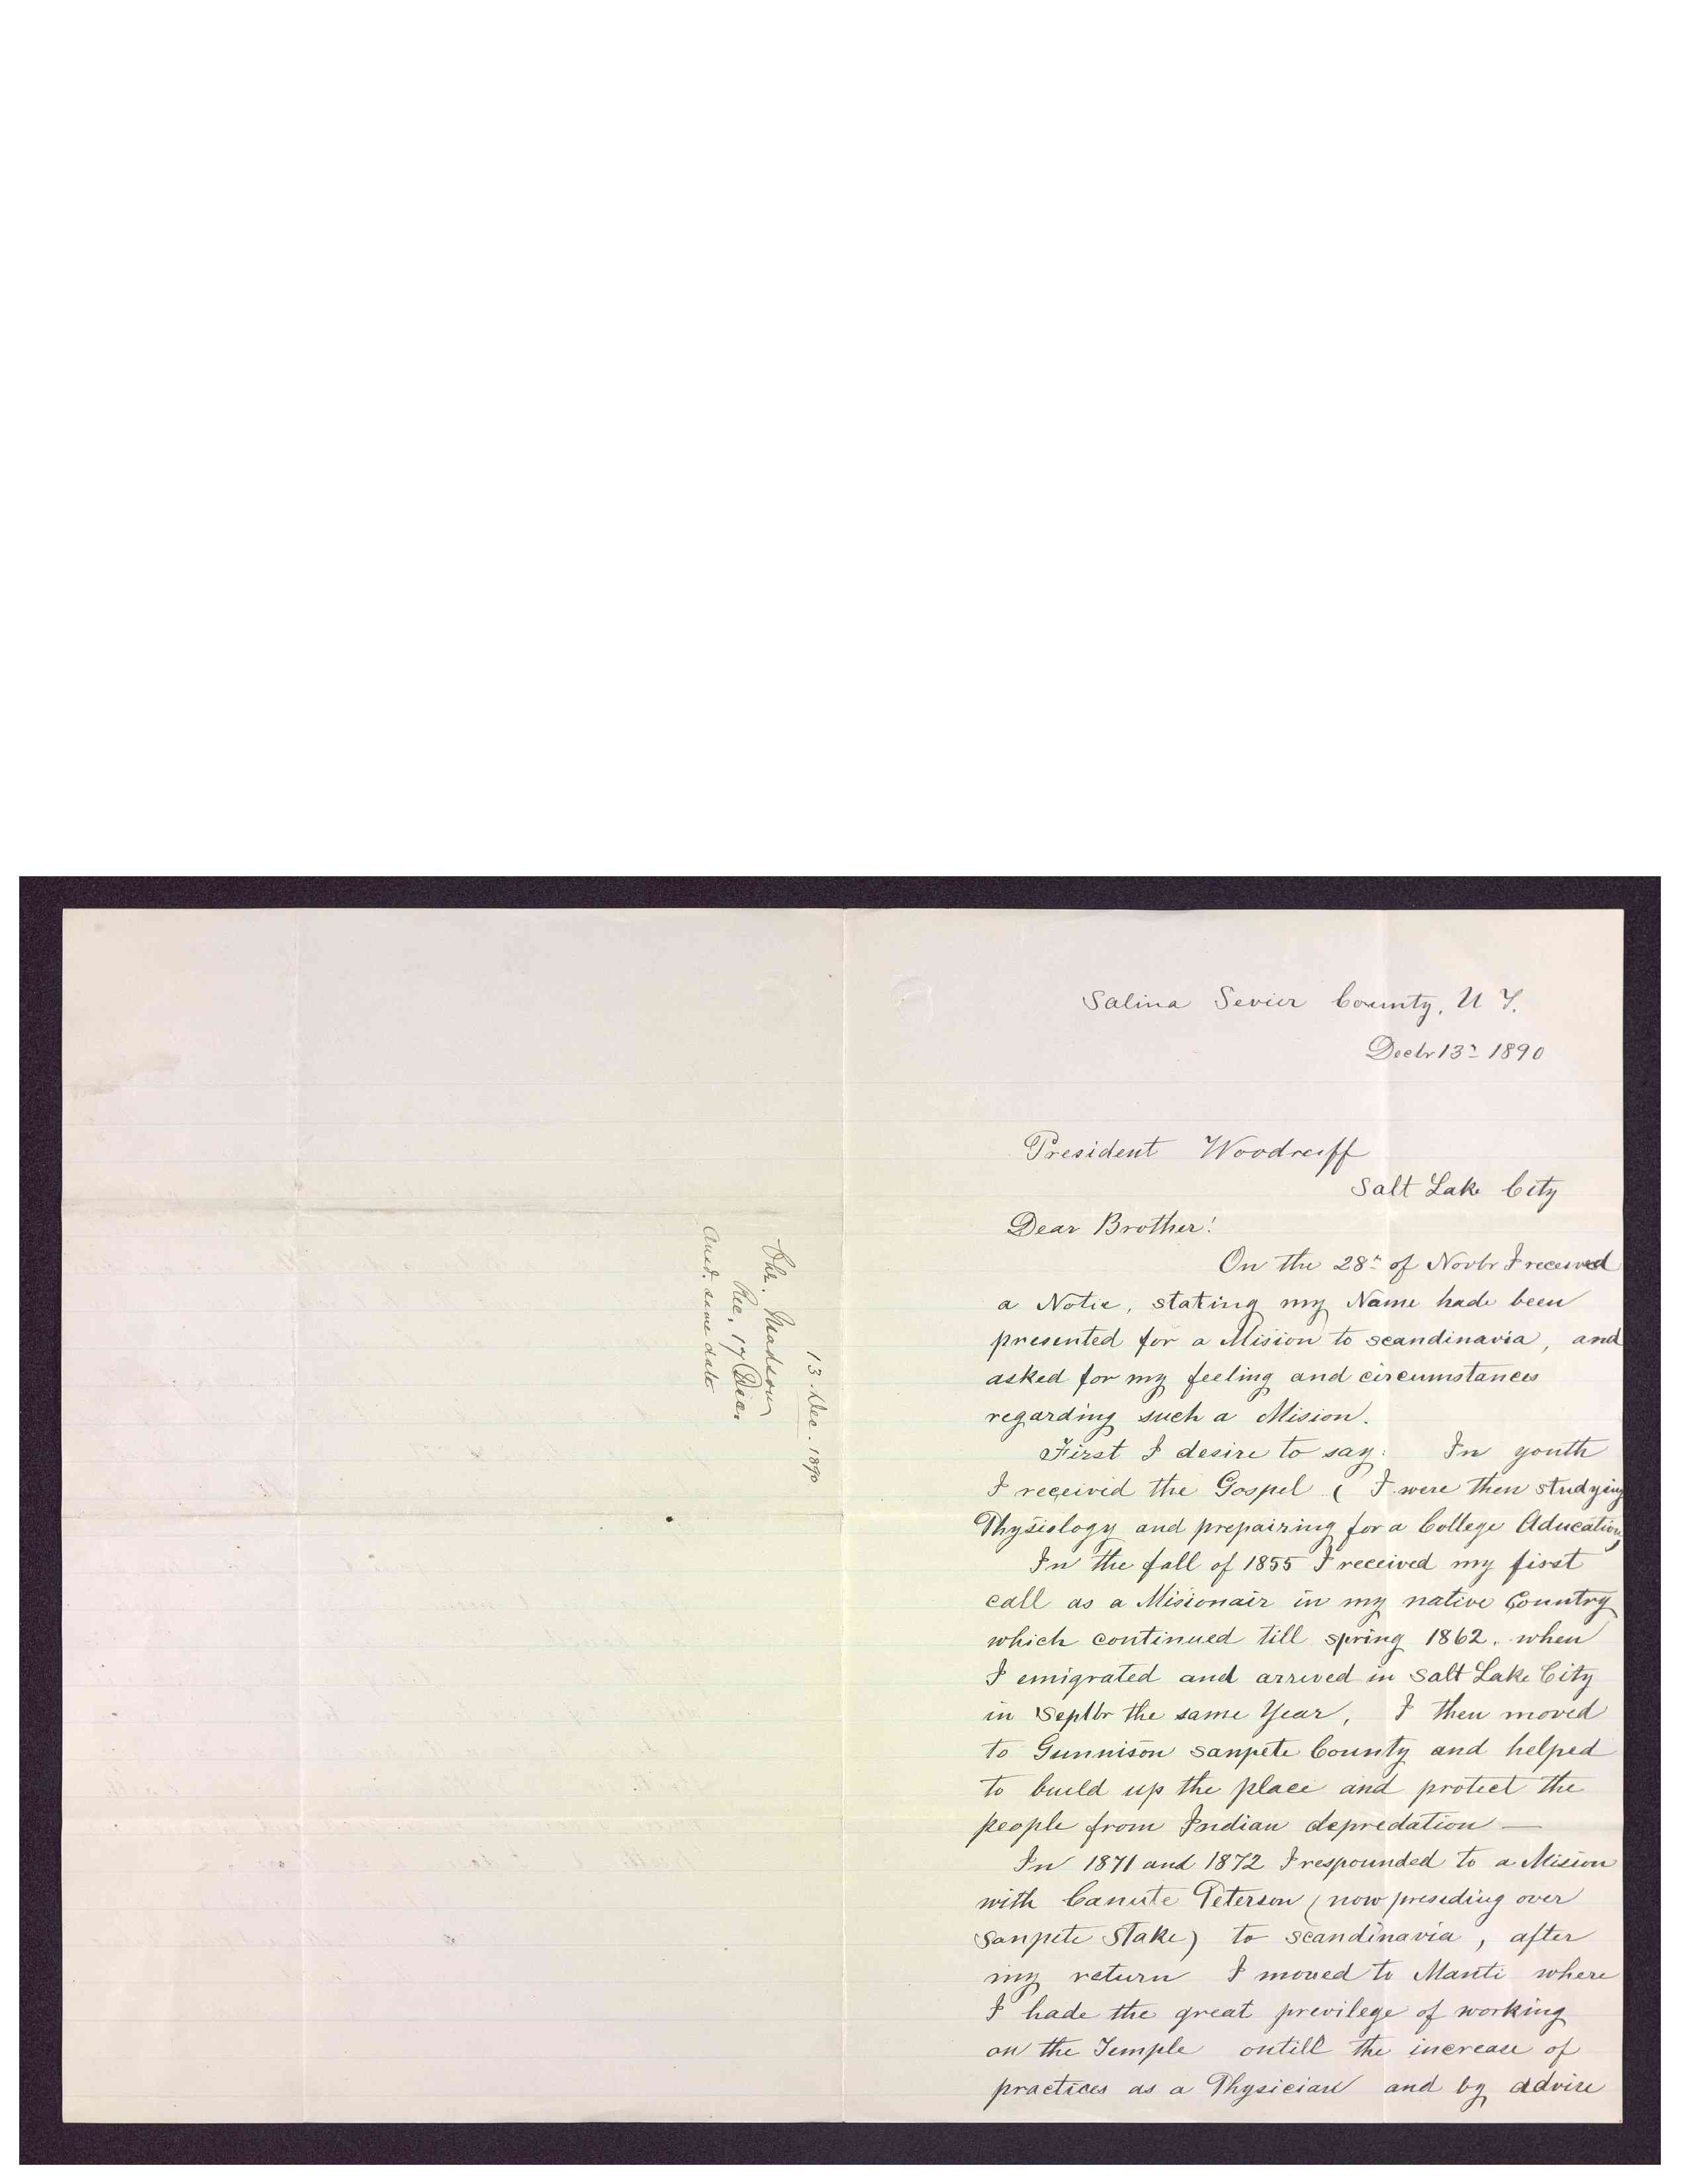 Salina Sevier County, U T.
Decbr 13th 1890
President Woodruff
Salt Lake City
Dear Brother!
On the 28th of Novbr I received
a Notie, stating my Name hade been
presented for a Mision to scandinavia, and
asked for my feeling and circumstances
regarding such a Mision.
First I desire to say: In youth
I received the Gospel ( I were then studying
Physiology and prepairing for a College Aducation)
In the fall of 1855 I received my first
call as a Misionair in my native Country
which continued till spring 1862. when
I emigrated and arrived in Salt Lake City
in Septbr the same Year, I then moved
to Gunnison sanpete County and helped
to build up the place and protect the
people from Indian depredation —
In 1871 and 1872 I respounded to a Mision
with Canute Peterson (now presiding over
Sanpete Stake) to scandinavia, after
my return I moved to Manti where
I hade the great previlege of working
on the Temple ontill the increase of
practices as a Physician and by advise
13 Dec. 1890
Chr. Madson
Rec. 17 Dec.
Ansd. same date